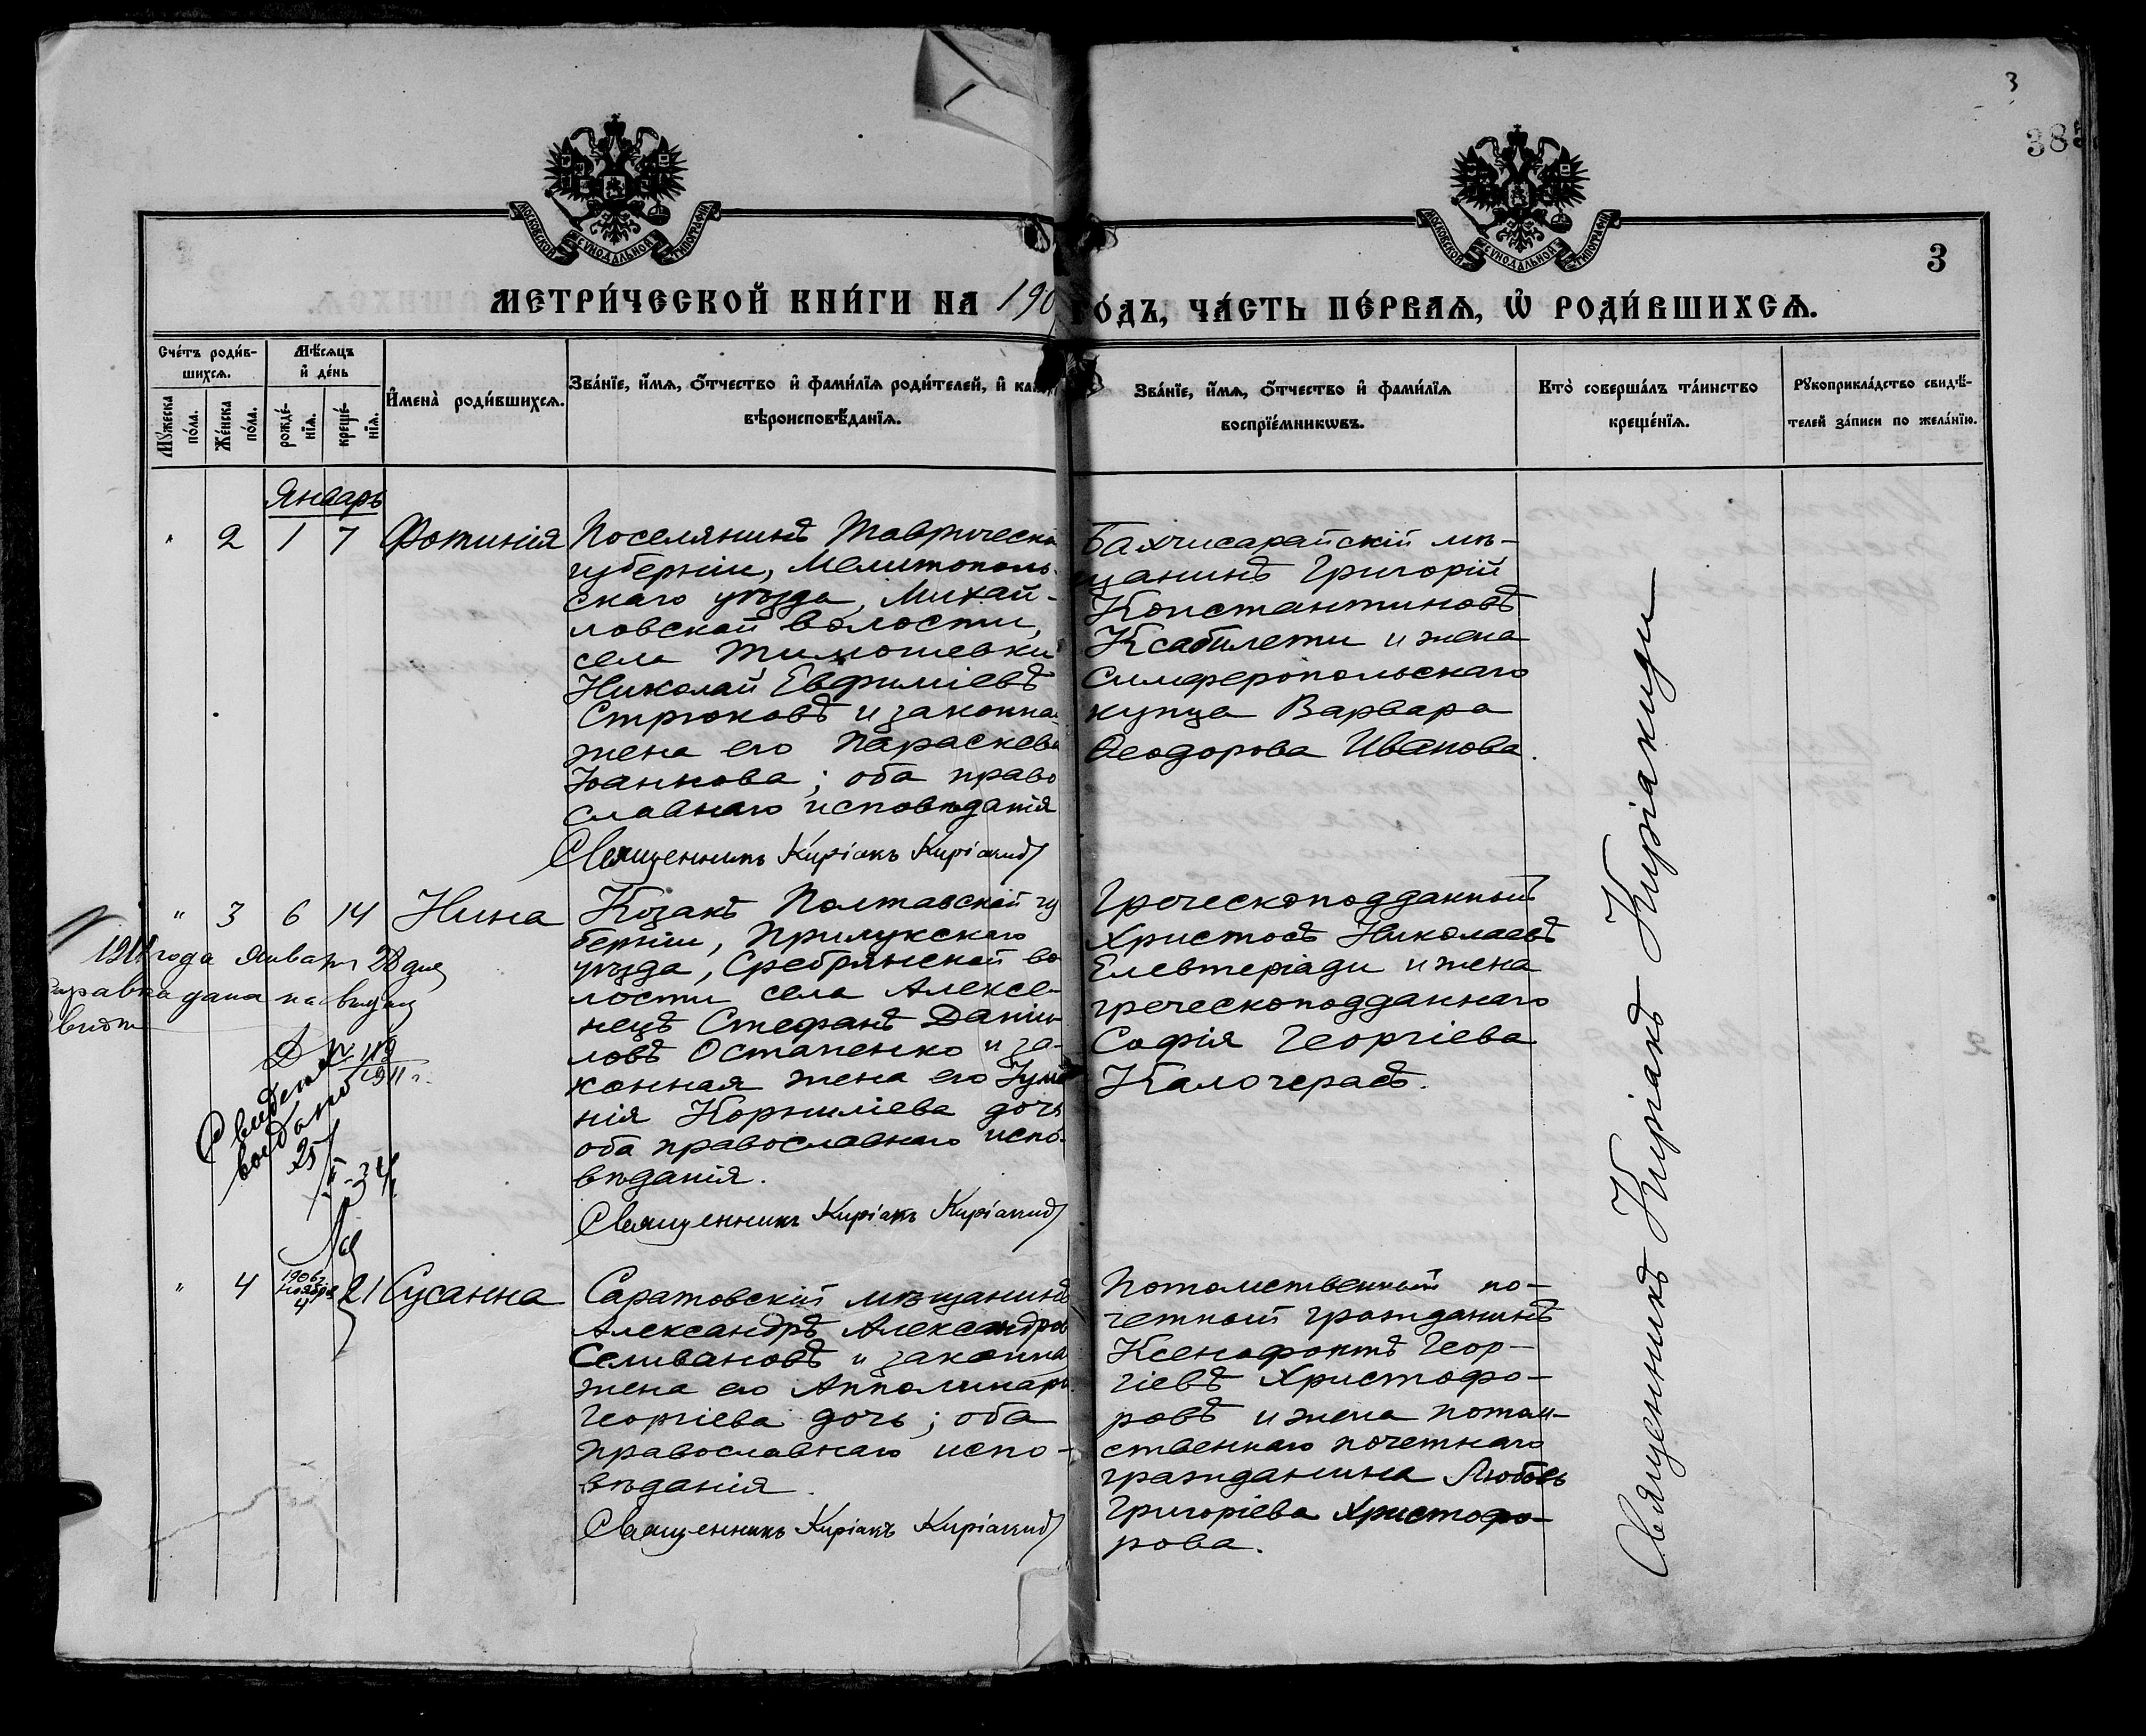 3
385
МОСКОВСКОЙ СѴНОДАЛЬНОЙ ТИПОГРАФІИ
МОСКОВСКОЙ СѴНОДАЛЬНОЙ ТИПОГРАФІИ
3
МЕТРИ́ЧЕСКОЙ КНИ́ГИ НА 190
ГО́ДЪ, ЧА́СТЬ ПЕ́РВАѦ, Ѡ҆ РОДИ́ВШИХСѦ.
Сче́тъ роди́в-
шихсѧ.
Мѣ́сѧцъ
и҆ де́нь
Мꙋ́жеска
по́ла.
Же́нска
по́ла.
рожде́-
нїѧ.
креще́-
нїѧ.
И҆мена̀ роди́вшихсѧ.
Зва́нїе, и҆́мѧ, ѻ҆́тчество и҆ фами́лїѧ роди́телей, и҆
вѣроисповѣ́данїѧ.
Зва́нїе, и҆́мѧ, ѻ҆́тчество и҆ фами́лїѧ
воспрїе́мникѡвъ.
Кто̀ соверша́лъ та́инство
креще́нїѧ.
Рꙋкоприкла́дство свидѣ́-
телей за́писи по жела́нїю.
Январь
" 2 1 7 Фотинія
Поселянинъ Тавричесной
губерніи, Мелитополь-
скаго уѣзда, Михай-
ловской волости,
села Тимошевки
Николай Евфиміевъ
Стрюковъ и законная
жена его Параскева
Іоаннова; оба право
славнаго исповѣданія
Священникъ Киріакъ Киріакиди
Бахчисарайскій мѣ-
щанинъ Григорій
Константиновъ
Ксабилети и жена
Симферопольскаго
купца Варвара
Ѳеодорова Иванова.
" 3 6 14 Нина
Козакъ Полтавской гу
берніи, Прилукскаго
уѣзда, Сребрянской во
лости села Алексе-
нецъ Стефанъ Дани-
ловъ Остапенко и за-
конная жена его
нія Корниліева дочь
оба православнаго испо-
вѣданія.
Священникъ Киріакъ Киріакиди
Греческоподданный
Христосъ Николаевъ
Елевтеріади и жена
греческоподданнаго
Софія Георгіева
Калочерасъ.
1911 года января 28 дня
справка дана на
№ 119
1911 г.
" 4 1906 г. Ноября 4 21 Сусанна
Саратовскій мѣщанинъ
Александръ Александров
Селивановъ и законная
жена его Апполинарія
Георгіева дочь; оба
православнаго испо-
вѣданія.
Священникъ Киріакъ Киріакиди
Потомственный по-
четный гражданинъ
Ксенофонтъ Геор-
гіевъ Христофо-
ровъ и жена потом-
ственнаго почетнаго
гражданина Любовь
Григоріева Христофо-
рова.
Священникъ Киріакъ Киріакиди